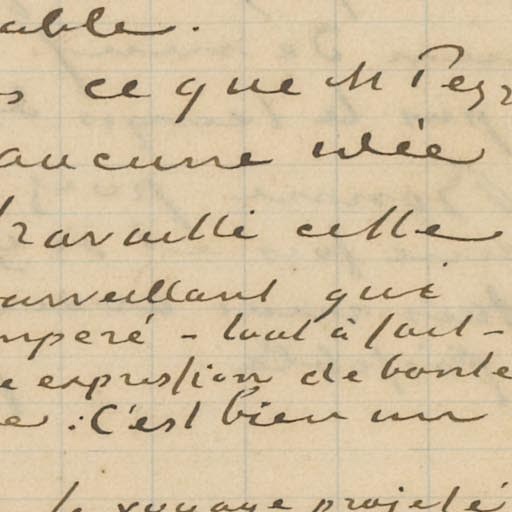 able.
s ce que M Pegr
aucune idée
travaillé cette
surveillant qui
mperé - tout à fait -
e expression de bonté
e : C'est bien un
le voyage projeté